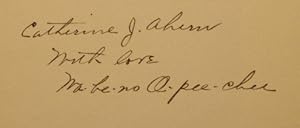 Catherine J. Ahern
With love
Wa-be-no O-pee-chee